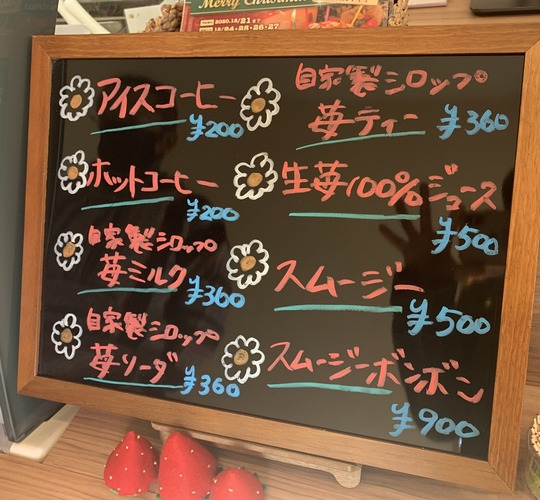 Merry Christmas
アイスコーヒー
¥200
ホットコーヒー
¥200
自家製シロップ
苺ミルク
¥360
自家製シロップ
苺ソーダ
¥360
自家製シロップ
苺ティー ¥360
生苺100%ジュース
¥500
スムージー
¥500
スムージーボンボン
¥900